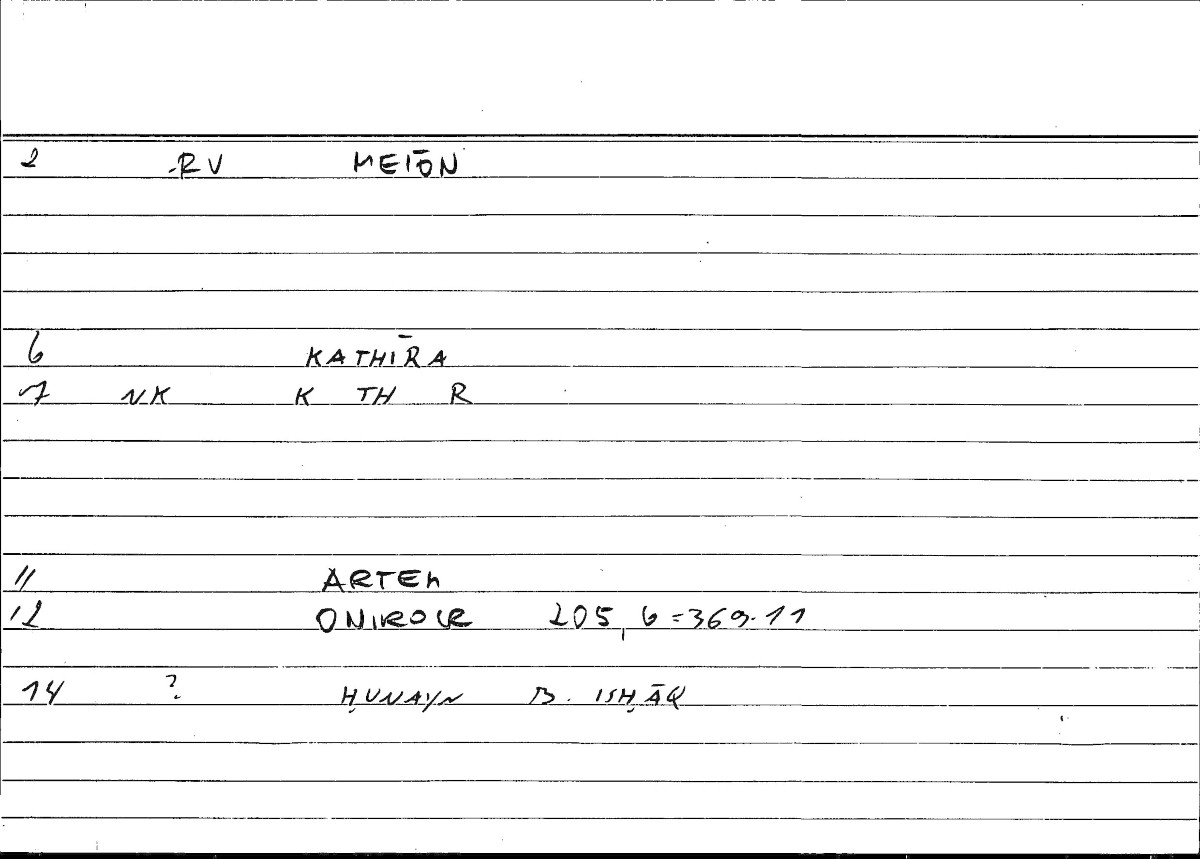 2 -RV MEIŌN
6 KATHĪRA
7 NK K TH R
11 ARTEM
12 ONIROCR 205, 6=369.11
14 ? ḤUNAYN B. ISḤĀQ